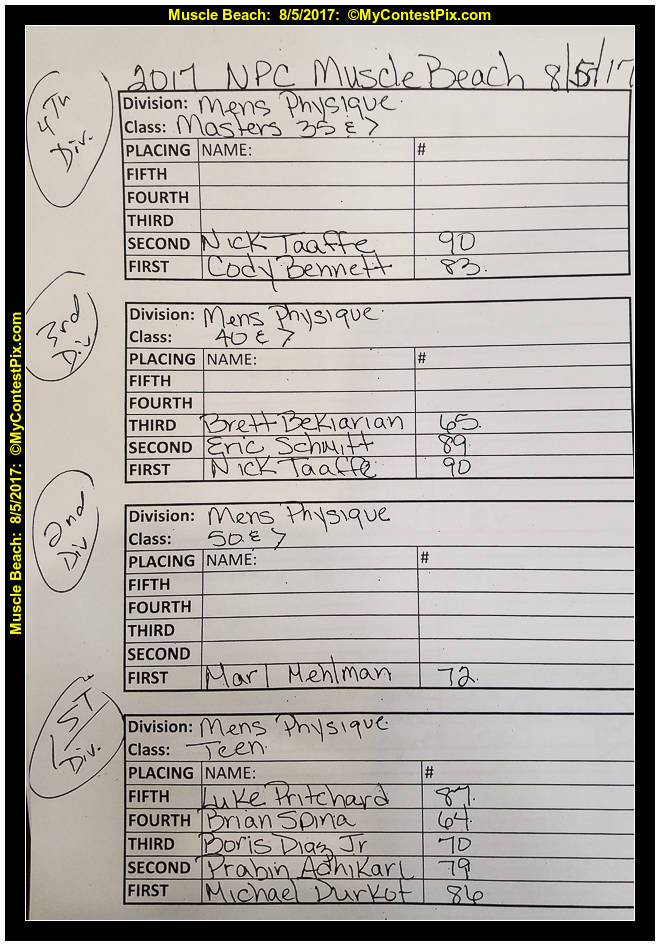 Muscle Beach: 8/5/2017: ©MyContestPix.com
2017 NPC Muscle Beach 8/5/17
4Th Div.
Division: Mens Physique
Class: Masters 35 & >
PLACING NAME: #
FIFTH
FOURTH
THIRD
SECOND Nick Taaffe 90
FIRST Cody Bennett 83.
3rd Div
Division: Mens Physique
Class: 40 & >
PLACING NAME: #
FIFTH
FOURTH
THIRD Brett Bekiarian 65.
SECOND Eric Schmitt 89
FIRST Nick Taaffe 90
2nd Div
Division: Mens Physique
Class: 50 & >
PLACING NAME: #
FIFTH
FOURTH
THIRD
SECOND
FIRST Mehlman 72.
1ST Div.
Division: Mens Physique
Class: Teen
PLACING NAME: #
FIFTH Luke Pritchard
FOURTH Brian Spina 64.
THIRD Boris Diaz Jr 70
SECOND Prabin Adhikari 79
FIRST Michael Durkot 86
Muscle Beach: 8/5/2017: ©MyContestPix.com